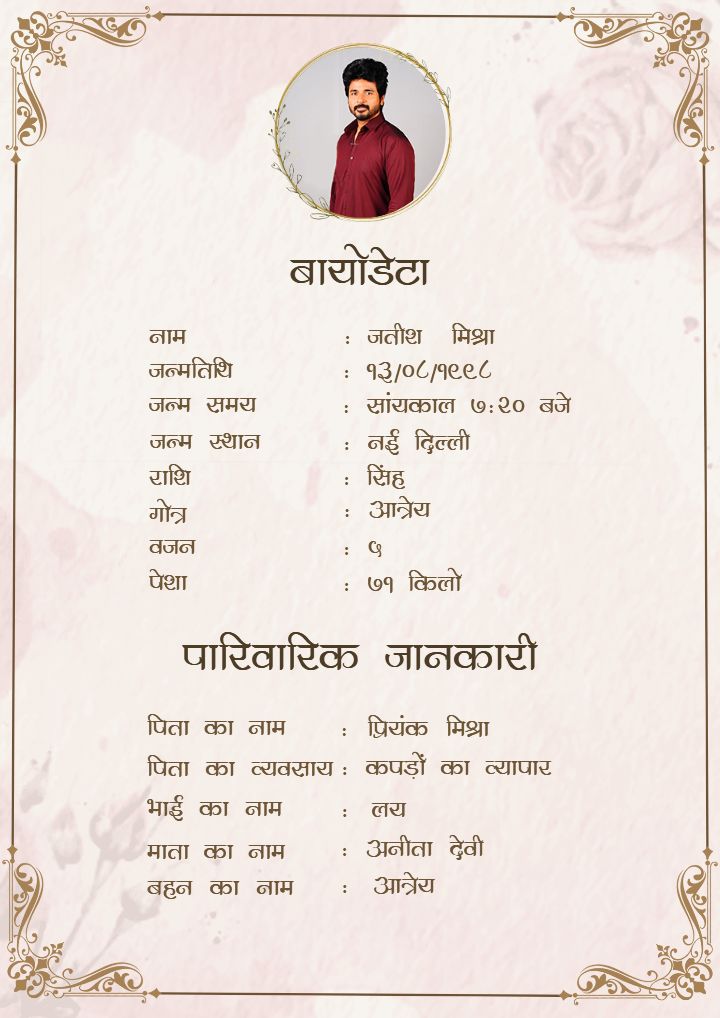 बायोडेटा
नाम : जतीश मिश्रा
जन्मतिथि : १३/०८/१९९८
जन्म समय : सांयकाल ७:२० बजे
जन्म स्थान : नई दिल्ली
राशि : सिंह
गोत्र : आत्रेय
वजन : ५
पेशा : ७१ किलो
पारिवारिक जानकारी
पिता का नाम : प्रियंक मिश्रा
पिता का व्यवसाय : कपड़ों का व्यापार
भाई का नाम : लय
माता का नाम : अनीता देवी
बहन का नाम : आत्रेय